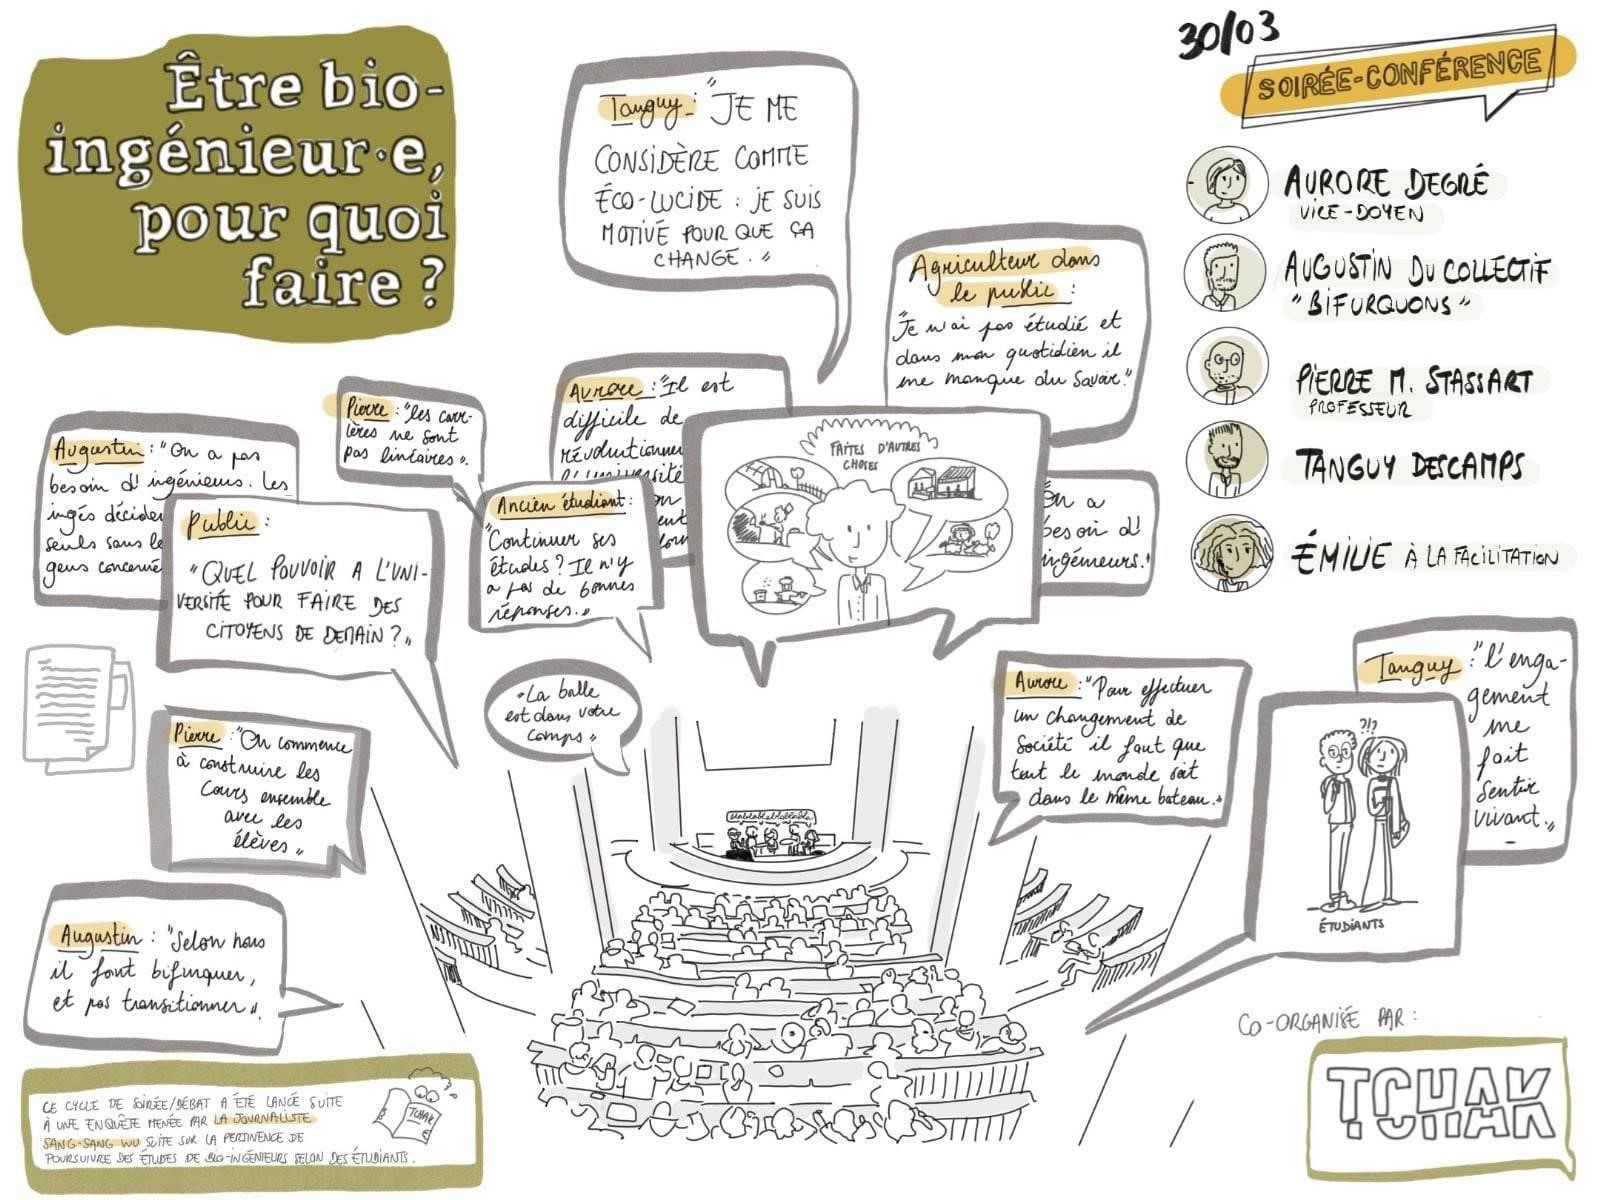 Être bio-
ingénieur·e,
pour quoi
faire ?
30/03
SOIRÉE-CONFÉRENCE
AURORE DEGRÉ
VICE-DOYEN
AUGUSTIN DU COLLECTIF
"BIFURQUONS"
PIERRE M. STASSART
PROFESSEUR
TANGUY DESCAMPS
ÉMILIE À LA FACILITATION
Tanguy : "JE ME
CONSIDÈRE COMME
ÉCO-LUCIDE : JE SUIS
MOTIVÉ POUR QUE ÇA
CHANGE."
Agriculteur dans
le public :
"Je n'ai pas étudié et
dans mon quotidien il
me manque du savoir."
Pierre : "les carr-
ières ne sont
pas linéaires".
Aurore : "Il est
difficile de
révolutionner
l'université
Augustin : "On a pas
besoin d'ingénieurs. Les
ingés décident
seuls sans le
gens concerné
Public :
"QUEL POUVOIR A L'UNI-
VERSITÉ POUR FAIRE DES
CITOYENS DE DEMAIN ?"
Ancien étudiant :
"Continuer ses
études ? Il n'y
a pas de bonnes
réponses."
FAITES D'AUTRES
CHOSES
On a
besoin d'
ingénieurs."
Pierre : "On commence
à construire les
cours ensemble
avec les
élèves"
"La balle
est dans votre
camps"
blablablablablabla
Aurore : "Pour effectuer
un changement de
société il faut que
tout le monde soit
dans le même bateau."
Tanguy : "l'enga-
gement
me
fait
sentir
vivant."
?!?
ÉTUDIANTS
Augustin : "Selon nous
il faut bifurquer,
et pas transitionner".
CE CYCLE DE SOIRÉE/DÉBAT A ÉTÉ LANCÉ SUITE
À UNE ENQUÊTE MENÉE PAR LA JOURNALISTE
SANG-SANG WU SUITE SUR LA PERTINENCE DE
POURSUIVRE DES ÉTUDES DE BIO-INGÉNIEURS SELON DES ÉTUDIANTS.
TCHAK
CO-ORGANISÉ PAR :
TCHAK